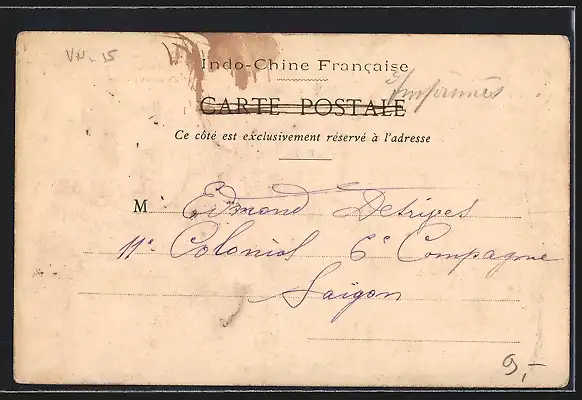 VN. 15
Indo-Chine Française
Imprimés
CARTE POSTALE
Ce côté est exclusivement réservé à l'adresse
M Edmond Detripes
11e Colonial 6e Compagnie
Saïgon
9,-